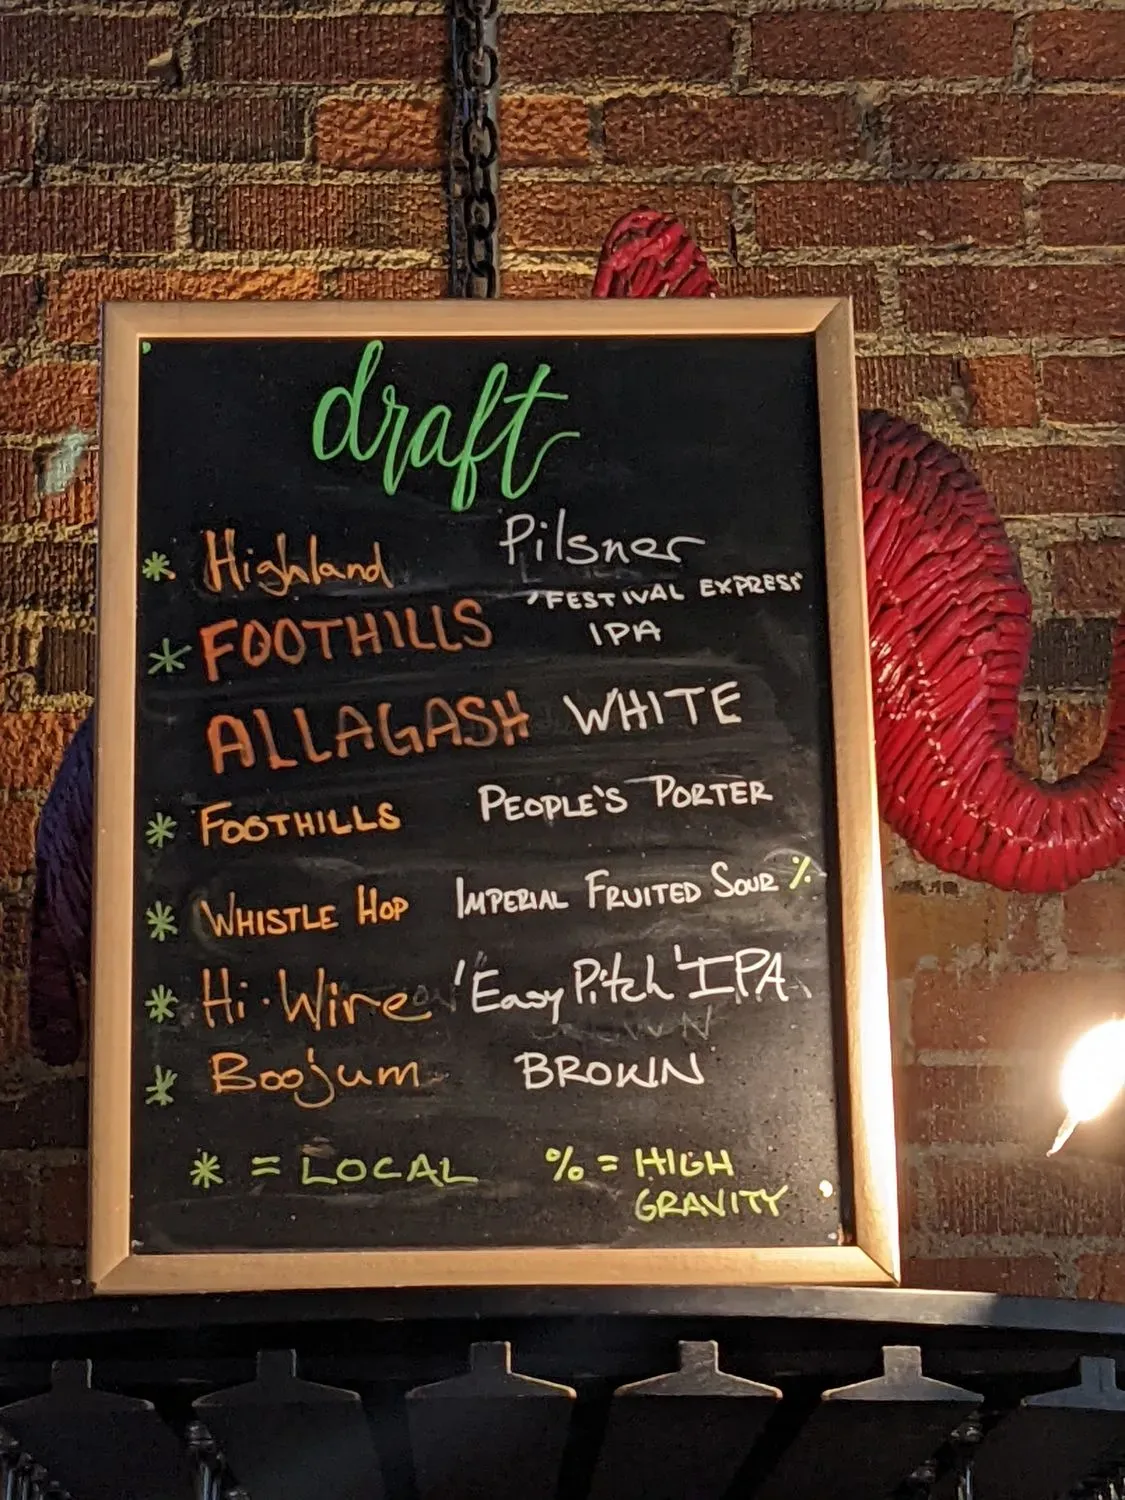 draft
* Highland Pilsner
* FOOTHILLS 'FESTIVAL EXPRESS'
IPA
ALLAGASH WHITE
* FOOTHILLS PEOPLE'S PORTER
* WHISTLE HOP IMPERIAL FRUITED SOUR %
* Hi-Wire 'Easy Pitch' IPA
* Boojum BROWN
* = LOCAL % = HIGH
GRAVITY